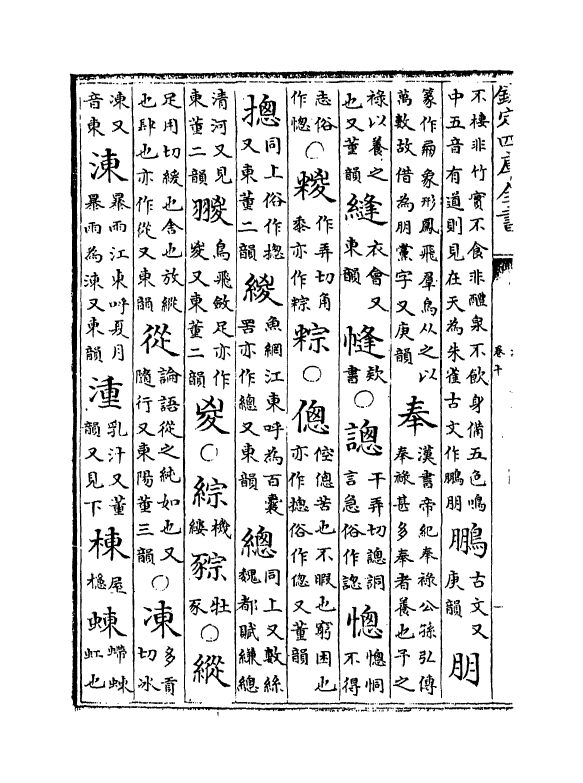 欽定四庫全書
卷十
不棲非竹實不食非醴泉不飲身備五色鳴中五音有道則見在天為朱雀古文作鵬朋鵬古文又庚韻朋
篆作𠕋象形鳳飛羣鳥從之以萬數故借為朋黨字又庚韻奉漢書帝紀奉祿公孫弘傳奉祿甚多奉者養也予之
祿以養之也又董韻縫衣會又東韻㡝款書○謥千弄切謥詷言急俗作認愡愡恫不得
志俗作惚○糉作弄切角黍亦作粽粽○傯倥傯苦也不暇也窮困也亦作摠俗作偬又董韻
摠同上俗作揔又東董二韻緵魚網江東呼為百囊罟亦作總又東韻總同上又數絲魏都賦縑總
清河又見東董二韻翪鳥飛斂足亦作㚇又東董二韻㚇○綜機縷豵牡豕○縱
足用切緩也舍也放縱也肆也亦作從又東韻從論語從之純如也又隨行又東陽董三韻○凍多貢切冰
凍又音東涷暴雨江東呼夏月暴雨為涷又東韻湩乳汁又董韻又見下棟屋檼蝀螮蝀虹也